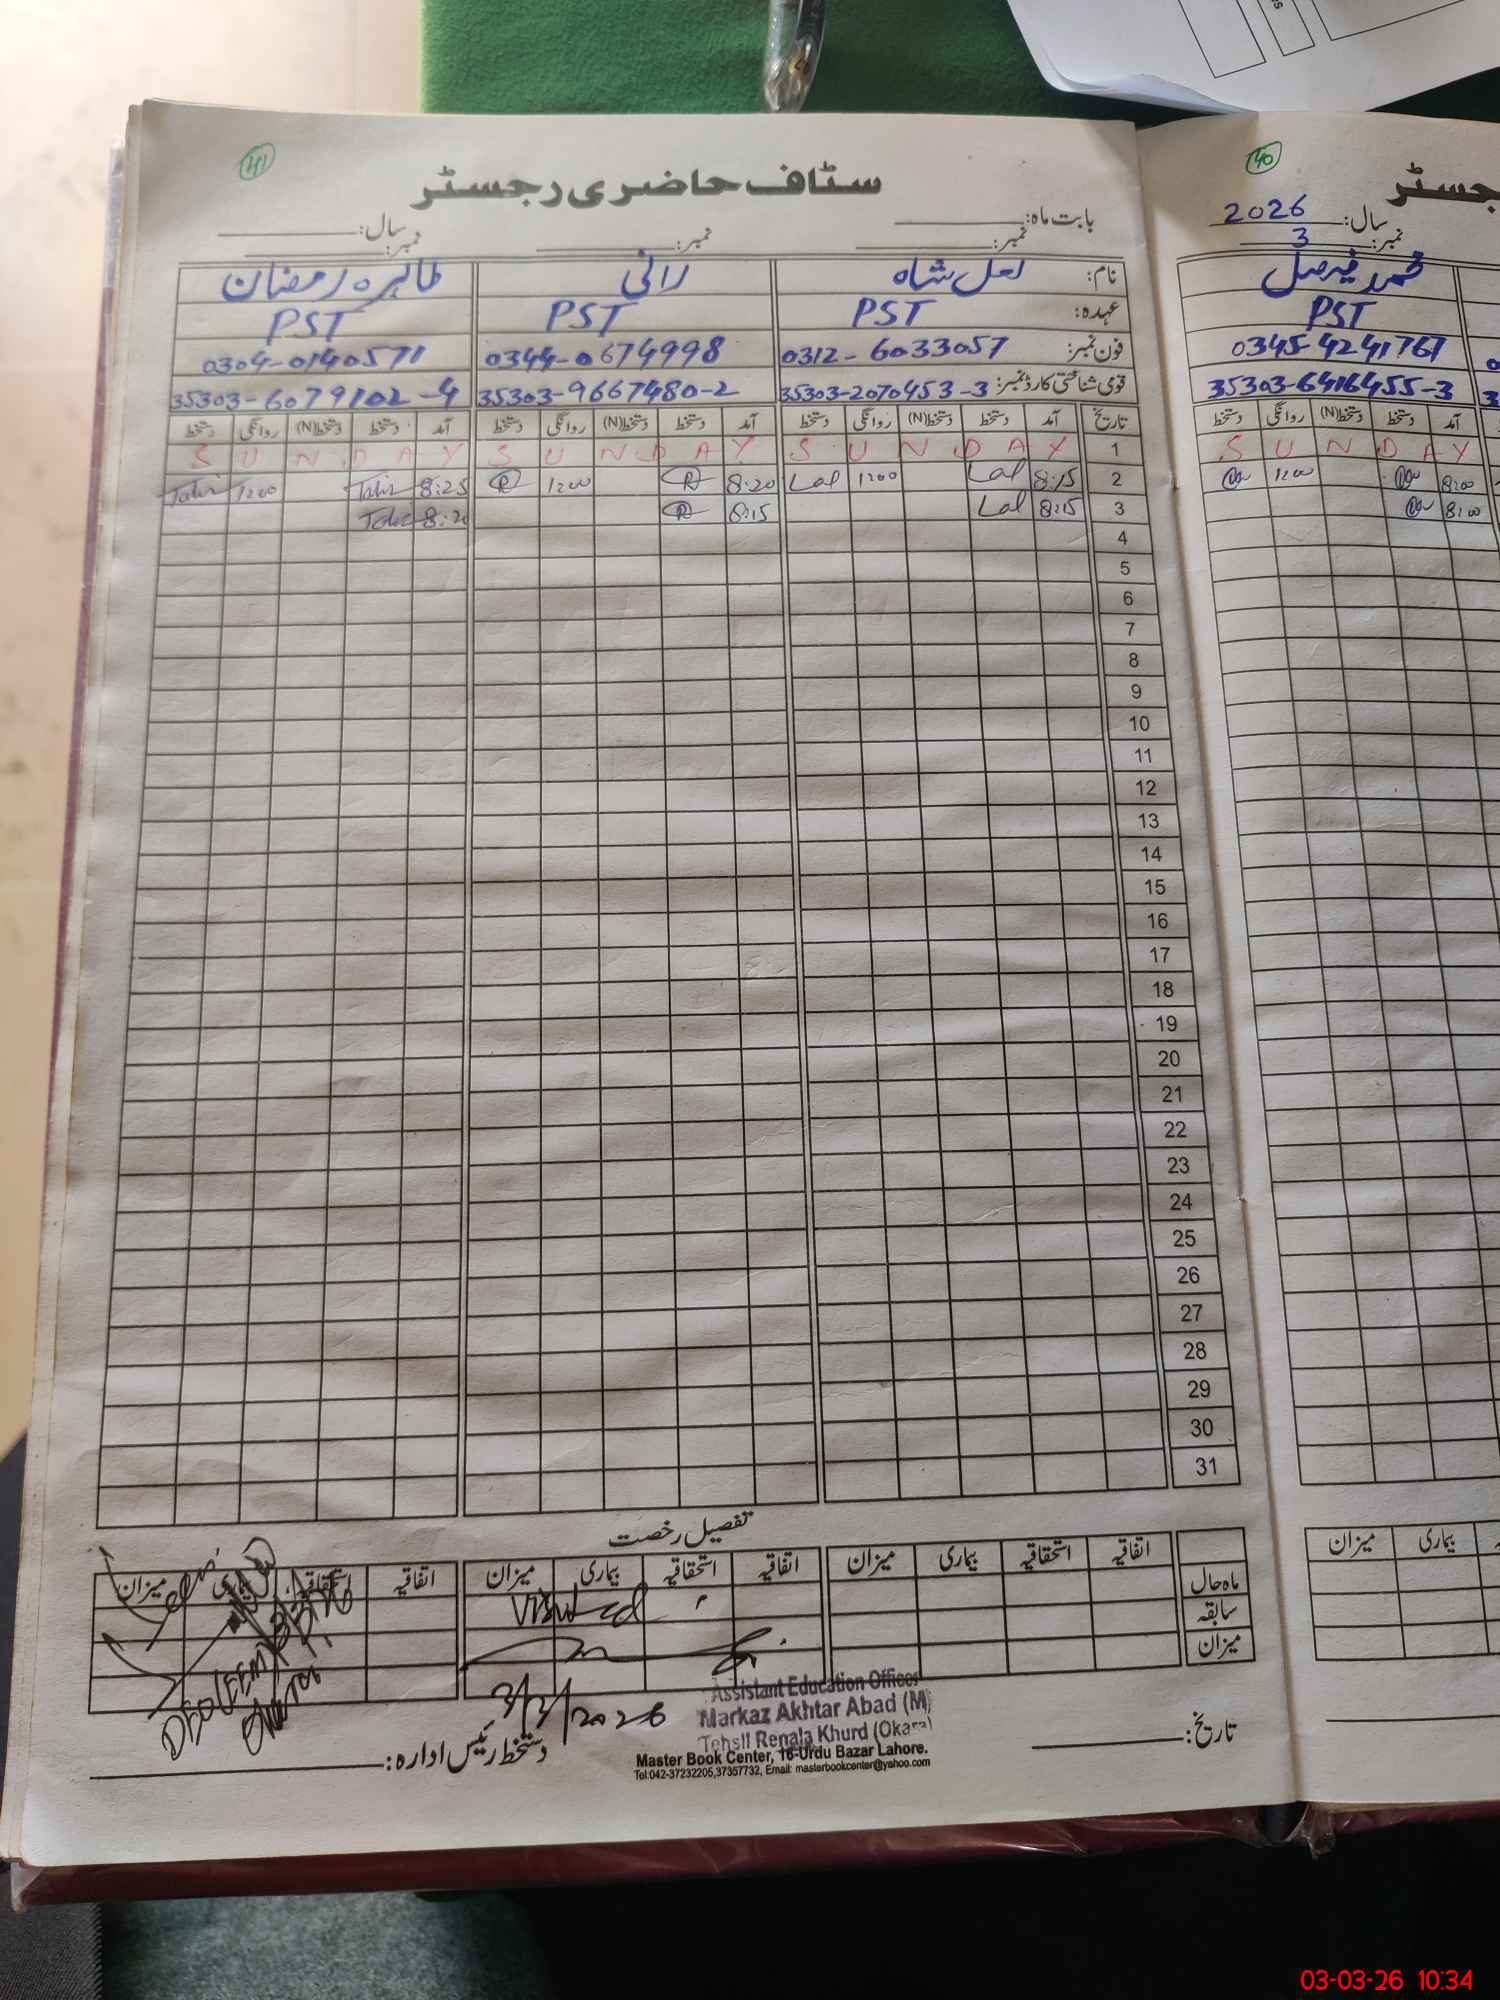 41
سٹاف حاضری رجسٹر
بابت ماہ: سال:
نمبر: نمبر: نمبر:
نام: لعل شاہ رانی طاہرہ رمضان
عہدہ: PST PST PST
فون نمبر: 0312-6033057 0344-0674998 0304-0140571
قومی شناختی کارڈ نمبر: 35303-2070453-3 35303-9667480-2 35303-6079102-4
تاریخ آمد دستخط دستخط(N) روانگی دستخط آمد دستخط دستخط(N) روانگی دستخط آمد دستخط دستخط(N) روانگی دستخط
1 S U N D A Y S U N D A Y S U N D A Y
2 8:15 Lal 1200 Lal 8:20 R 1200 R 8:25 Tahir 1200 Tahir
3 8:15 Lal 8:15 R 8:20 Tahir
4
5
6
7
8
9
10
11
12
13
14
15
16
17
18
19
20
21
22
23
24
25
26
27
28
29
30
31
تفصیل رخصت
اتفاقیہ استحقاقیہ بیماری میزان اتفاقیہ استحقاقیہ بیماری میزان اتفاقیہ استحقاقیہ بیماری میزان
ماہ حال
سابقہ
میزان
Visited
3/3/2026
Assistant Education Officer
Markaz Akhtar Abad (M)
Tehsil Renala Khurd (Okara)
تاریخ: دستخط رئیس ادارہ:
Master Book Center, 16-Urdu Bazar Lahore.
Tel:042-37232205,37357732, Email: masterbookcenter@yahoo.com
40
جسٹر
سال: 2026
نمبر: 3
محمد فیصل
PST
0345-4241761
35303-6416455-3
آمد دستخط دستخط(N) روانگی دستخط
S U N D A Y
8:00 1200
8:00
بیماری میزان
03-03-26 10:34